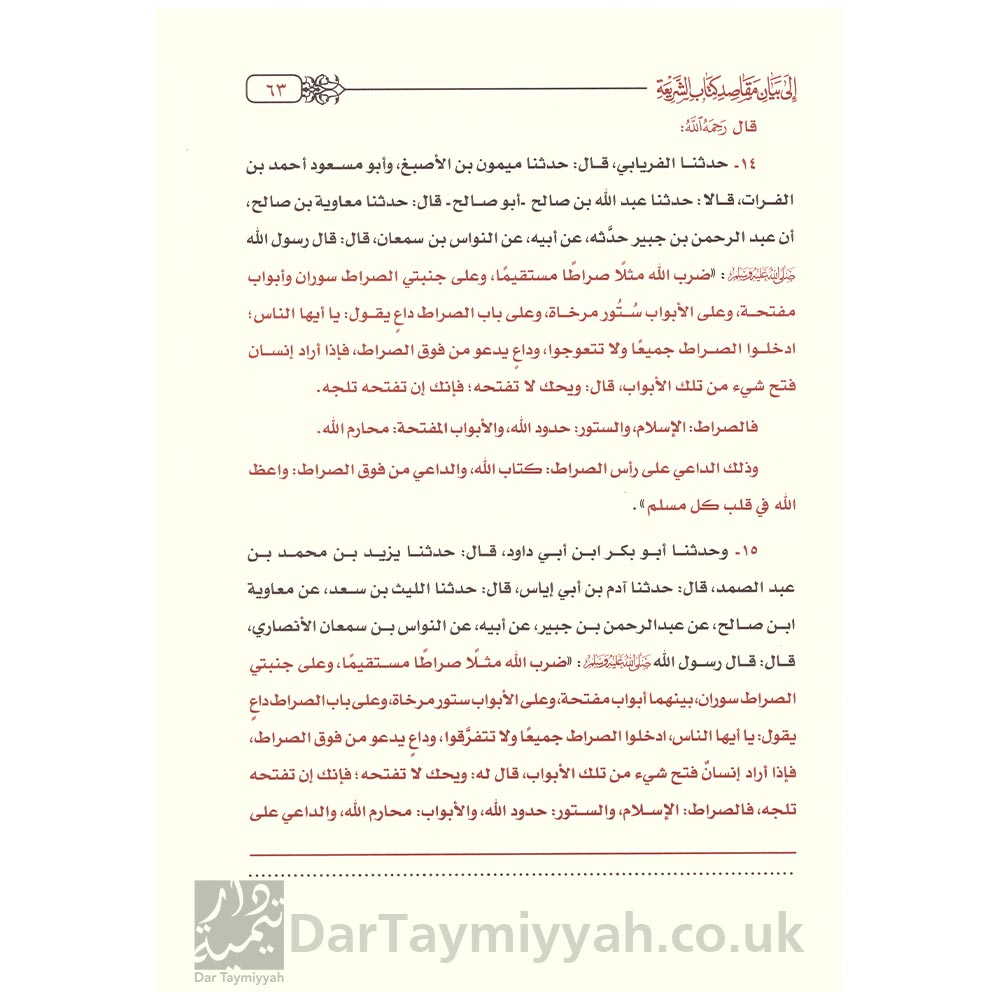 إلى بيان مقاصد كتاب الشريعة
٦٣
قال رَحِمَهُ ٱللَّهُ:
١٤- حدثنـا الفريابي، قـال: حدثنـا ميمون بن الأصبغ، وأبو مسـعود أحمد بن
الفـرات، قـالا: حدثنا عبد الله بن صالح -أبو صـالح- قال: حدثنا معاوية بن صالح،
أن عبد الرحمن بن جبير حدَّثه، عن أبيه، عن النواس بن سمعان، قال: قال رسول الله
صَلَّى ٱللَّهُ عَلَيْهِ وَسَلَّمَ: «ضرب الله مثلًا صراطًا مستقيمًا، وعلى جنبتي الصراط سوران وأبواب
مفتحـة، وعلى الأبواب سُـتُور مرخاة، وعلى باب الصراط داعٍ يقـول: يا أيها الناس؛
ادخلـوا الصـراط جميعًا ولا تتعوجوا، وداعٍ يدعو من فوق الصراط، فإذا أراد إنسـان
فتح شيء من تلك الأبواب، قال: ويحك لا تفتحه؛ فإنك إن تفتحه تلجه.
فالصراط: الإسلام، والستور: حدود الله، والأبواب المفتحة: محارم الله.
وذلك الداعي على رأس الصراط: كتاب الله، والداعي من فوق الصراط: واعظ
الله في قلب كل مسلم».
١٥- وحدثنـا أبـو بكـر ابـن أبـي داود، قـال: حدثنـا يزيـد بـن محمـد بـن
عبد الصمد، قال: حدثنا آدم بن أبي إياس، قال: حدثنا الليث بن سعد، عن معاوية
ابـن صـالح، عن عبدالرحمن بـن جبير، عن أبيه، عن النواس بـن سمعان الأنصاري،
قال: قال رسول الله صَلَّى ٱللَّهُ عَلَيْهِ وَسَلَّمَ: «ضرب الله مثـلًا صراطًا مسـتقيمًا، وعلى جنبتي
الصراط سوران، بينهما أبواب مفتحة، وعلى الأبواب ستور مرخاة، وعلى باب الصراط داعٍ
يقول: يا أيها الناس، ادخلوا الصراط جميعًا ولا تتفرَّقوا، وداعٍ يدعو من فوق الصراط،
فإذا أراد إنسانٌ فتح شيء من تلك الأبواب، قال له: ويحك لا تفتحه؛ فإنك إن تفتحه
تلجه، فالصراط: الإسـلام، والسـتور: حدود الله، والأبواب: محارم الله، والداعي على
دار تيمية
Dar Taymiyyah
DarTaymiyyah.co.uk